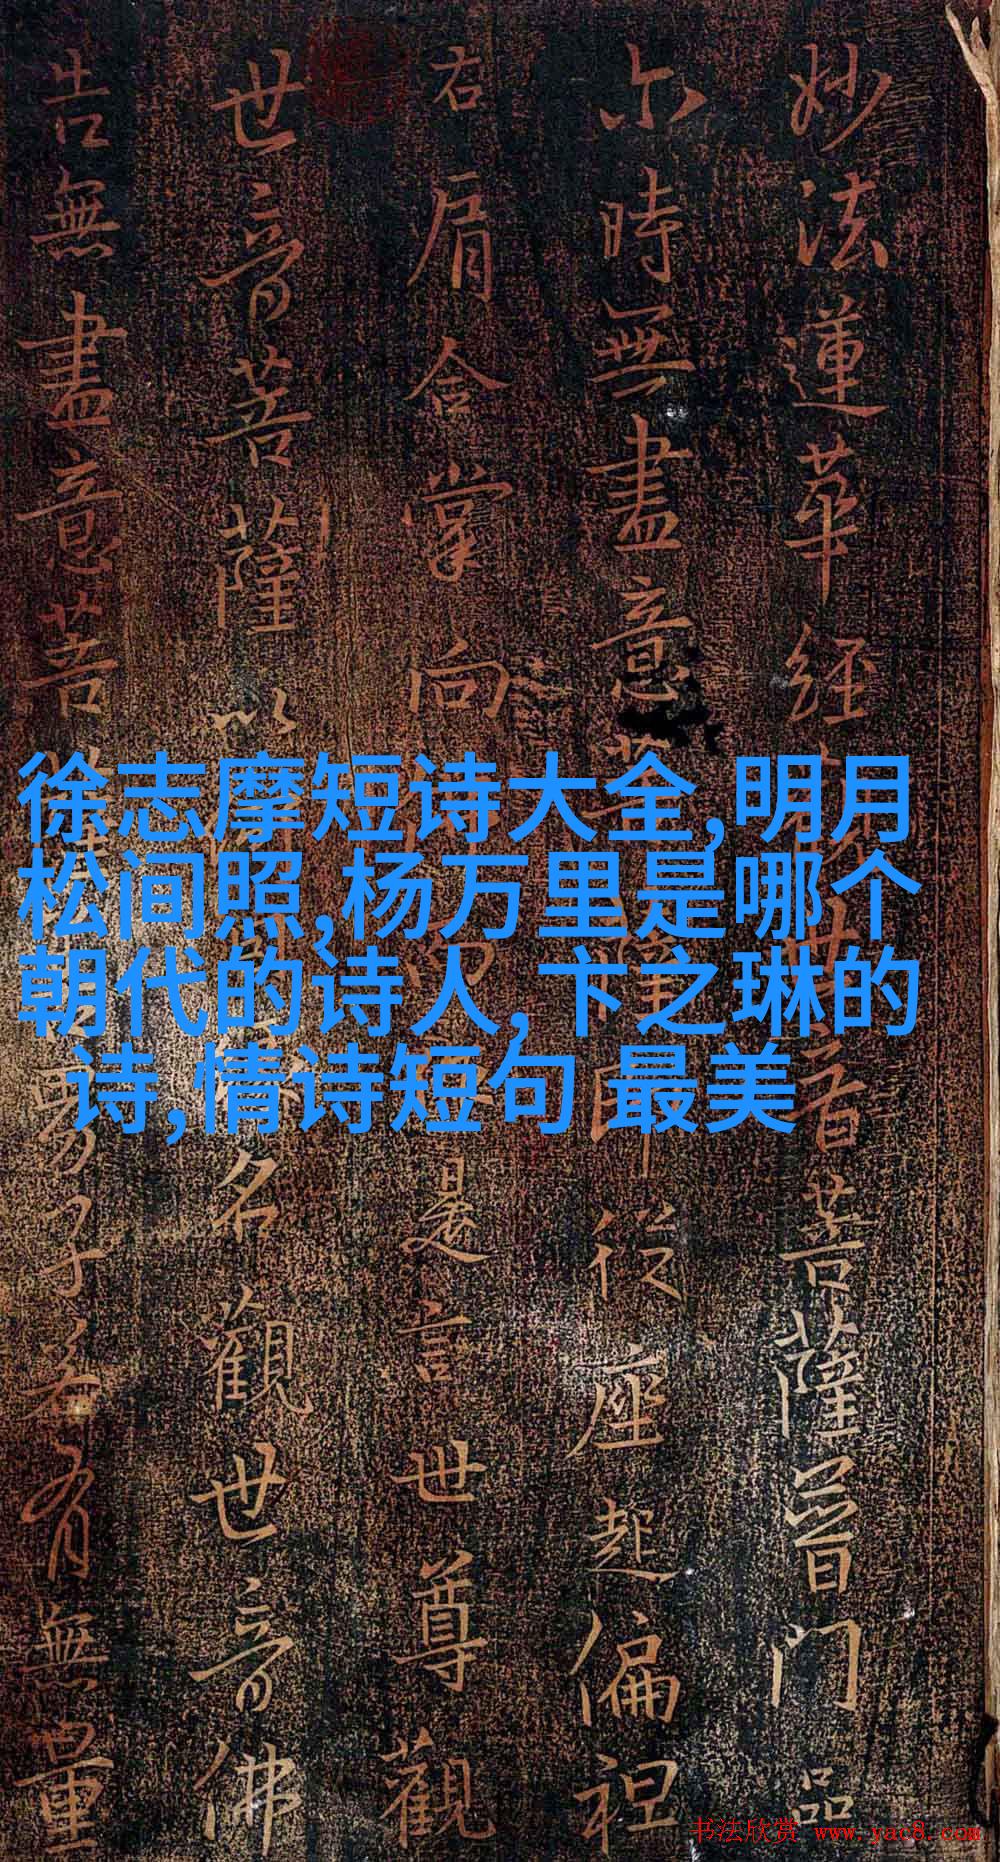 妙法蓮華經世音菩薩普門品
尒時無盡意菩薩即從座起偏袒
右肩合掌向而是言世尊觀
世音菩薩以名觀世音佛
告無盡意菩男子若有無量
徐志摩短诗大全,明月
松间照,杨万里是哪个
朝代的诗人,卞之琳的
诗,情诗短句 最美
书法欣赏 www.yac8.com